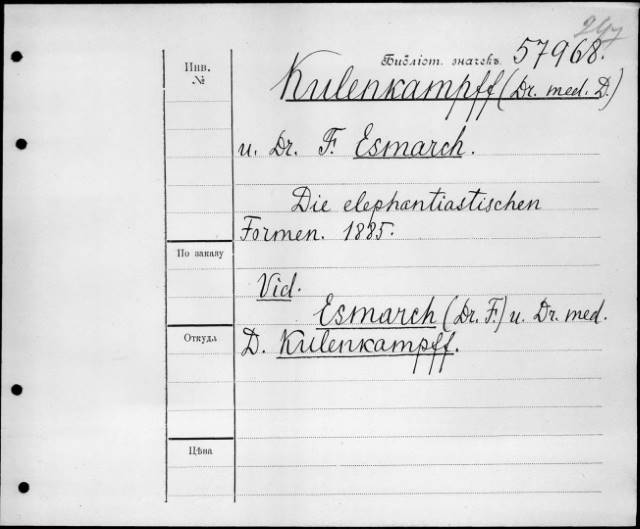 297
Инв.
№
Библіот. значекъ 57968.
Kulenkampff (Dr. med. D.)
u. Dr. F. Esmarch.
Die elephantiastischen
Formen. 1885.
По заказу
Vid.
Esmarch (Dr. F.) u. Dr. med.
Откуда
D. Kulenkampff.
Цѣна